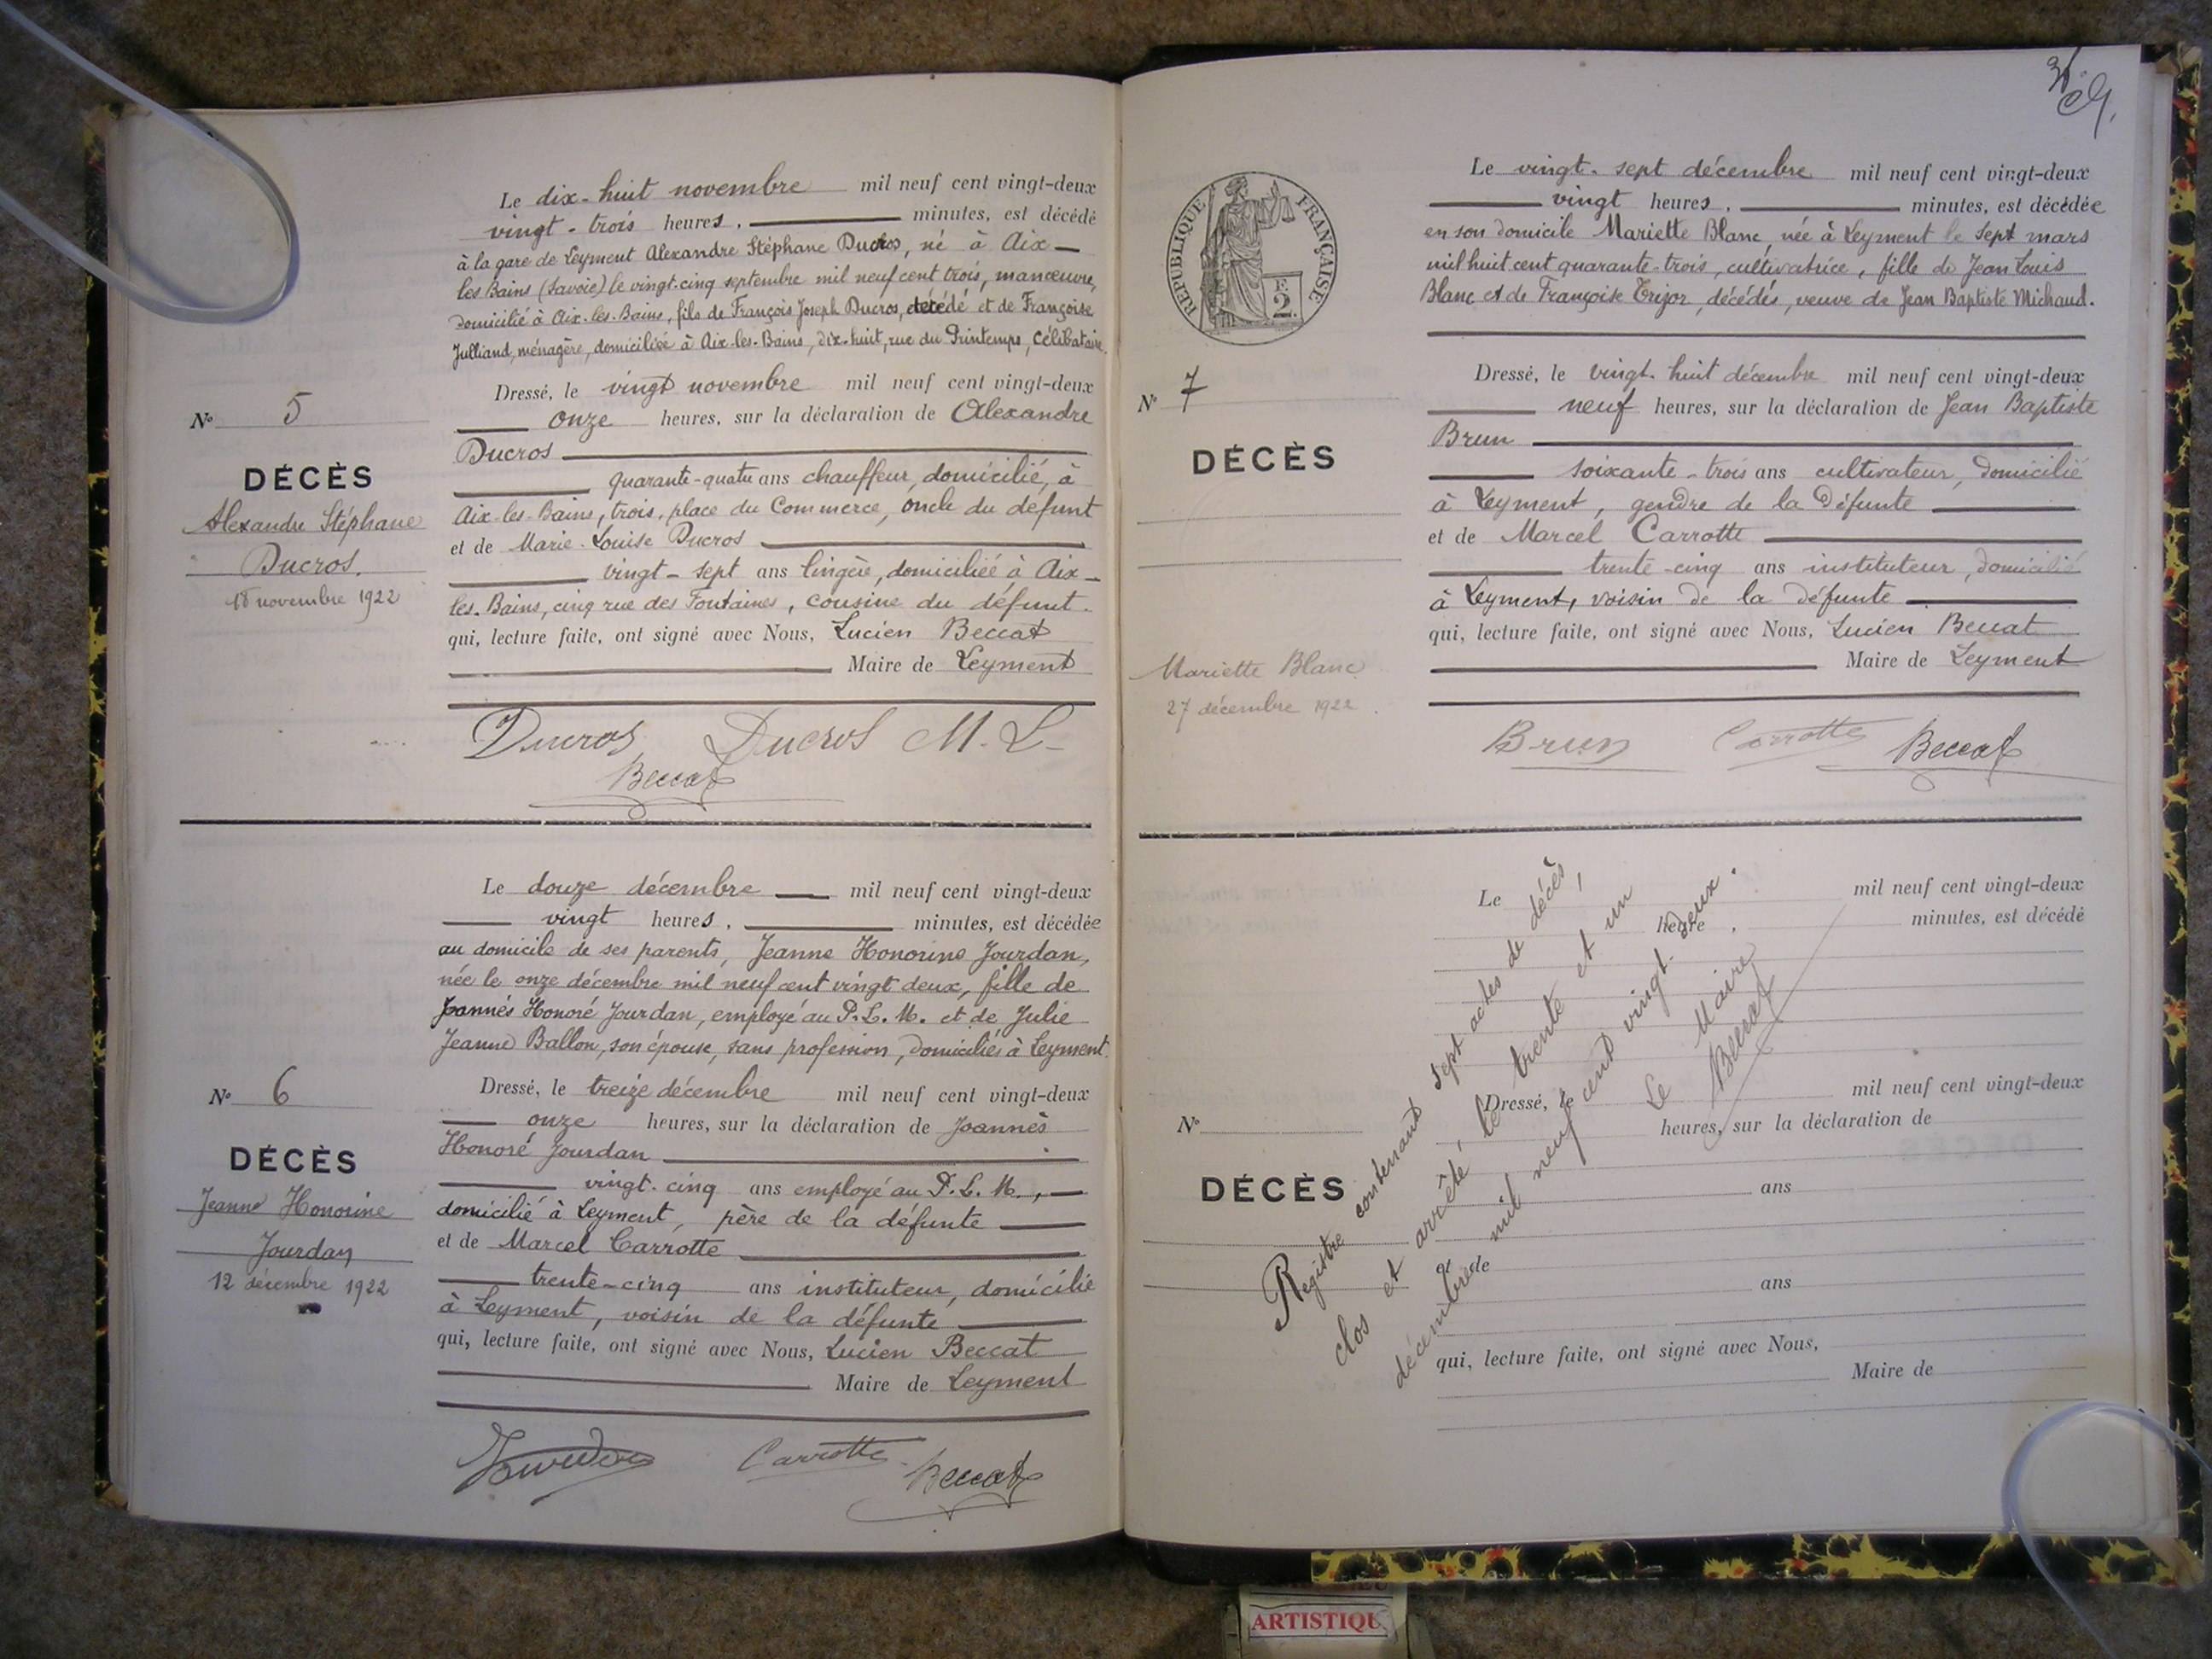 Le dix-huit novembre mil neuf cent vingt-deux
vingt-trois heures, minutes, est décédé
à la gare de Leyment Alexandre Stéphane Ducros, né à Aix-
les Bains (Savoie) le vingt-cinq septembre mil neuf cent trois, manœuvre,
domicilié à Aix-les-Bains, fils de François Joseph Ducros, décédé et de Françoise
Julliand, ménagère, domiciliée à Aix-les-Bains, dix-huit, rue du Printemps, célibataire.
Dressé, le vingt novembre mil neuf cent vingt-deux
onze heures, sur la déclaration de Alexandre
Ducros
quarante-quatre ans chauffeur, domicilié, à
Aix-les-Bains, trois, place du Commerce, oncle du défunt
et de Marie-Louise Ducros
vingt-sept ans lingère, domiciliée à Aix-
les-Bains, cinq rue des Fontaines, cousine du défunt.
qui, lecture faite, ont signé avec Nous, Lucien Beccat
Maire de Leyment
Ducros Ducros M-L-
Beccat
N° 5
DÉCÈS
Alexandre Stéphane
Ducros.
18 novembre 1922
Le douze décembre mil neuf cent vingt-deux
vingt heures, minutes, est décédée
au domicile de ses parents, Jeanne Honorine Jourdan,
née le onze décembre mil neuf cent vingt deux, fille de
Joannès Honoré Jourdan, employé au P.L.M. et de Julie
Jeanne Ballon, son épouse, sans profession, domiciliés à Leyment.
Dressé, le treize décembre mil neuf cent vingt-deux
onze heures, sur la déclaration de Joannès
Honoré Jourdan
vingt-cinq ans employé au P.L.M.,
domicilié à Leyment, père de la défunte
et de Marcel Carrotte
trente-cinq ans instituteur, domicilié
à Leyment, voisin de la défunte
qui, lecture faite, ont signé avec Nous, Lucien Beccat
Maire de Leyment
Jourdan Carrotte Beccat
N° 6
DÉCÈS
Jeanne Honorine
Jourdan
12 décembre 1922
RÉPUBLIQUE FRANÇAISE
2
Le vingt-sept décembre mil neuf cent vingt-deux
vingt heures, minutes, est décédée
en son domicile Mariette Blanc, née à Leyment le sept mars
mil huit cent quarante-trois, cultivatrice, fille de Jean Louis
Blanc et de Françoise Trijor, décédés, veuve de Jean Baptiste Michaud.
Dressé, le vingt-huit décembre mil neuf cent vingt-deux
neuf heures, sur la déclaration de Jean Baptiste
Brun
soixante-trois ans cultivateur, domicilié
à Leyment, gendre de la défunte
et de Marcel Carrotte
trente-cinq ans instituteur, domicilié
à Leyment, voisin de la défunte
qui, lecture faite, ont signé avec Nous, Lucien Beccat
Maire de Leyment
Brun Carrotte Beccat
N° 7
DÉCÈS
Mariette Blanc
27 décembre 1922.
Le mil neuf cent vingt-deux
heure, minutes, est décédé
Dressé, le mil neuf cent vingt-deux
heures, sur la déclaration de
ans
et de
ans
qui, lecture faite, ont signé avec Nous,
Maire de
N°
DÉCÈS
Registre contenant sept actes de décès,
clos et arrêté, le trente et un
décembre mil neuf cent vingt-deux.
Le Maire
Beccat
ARTISTIQU